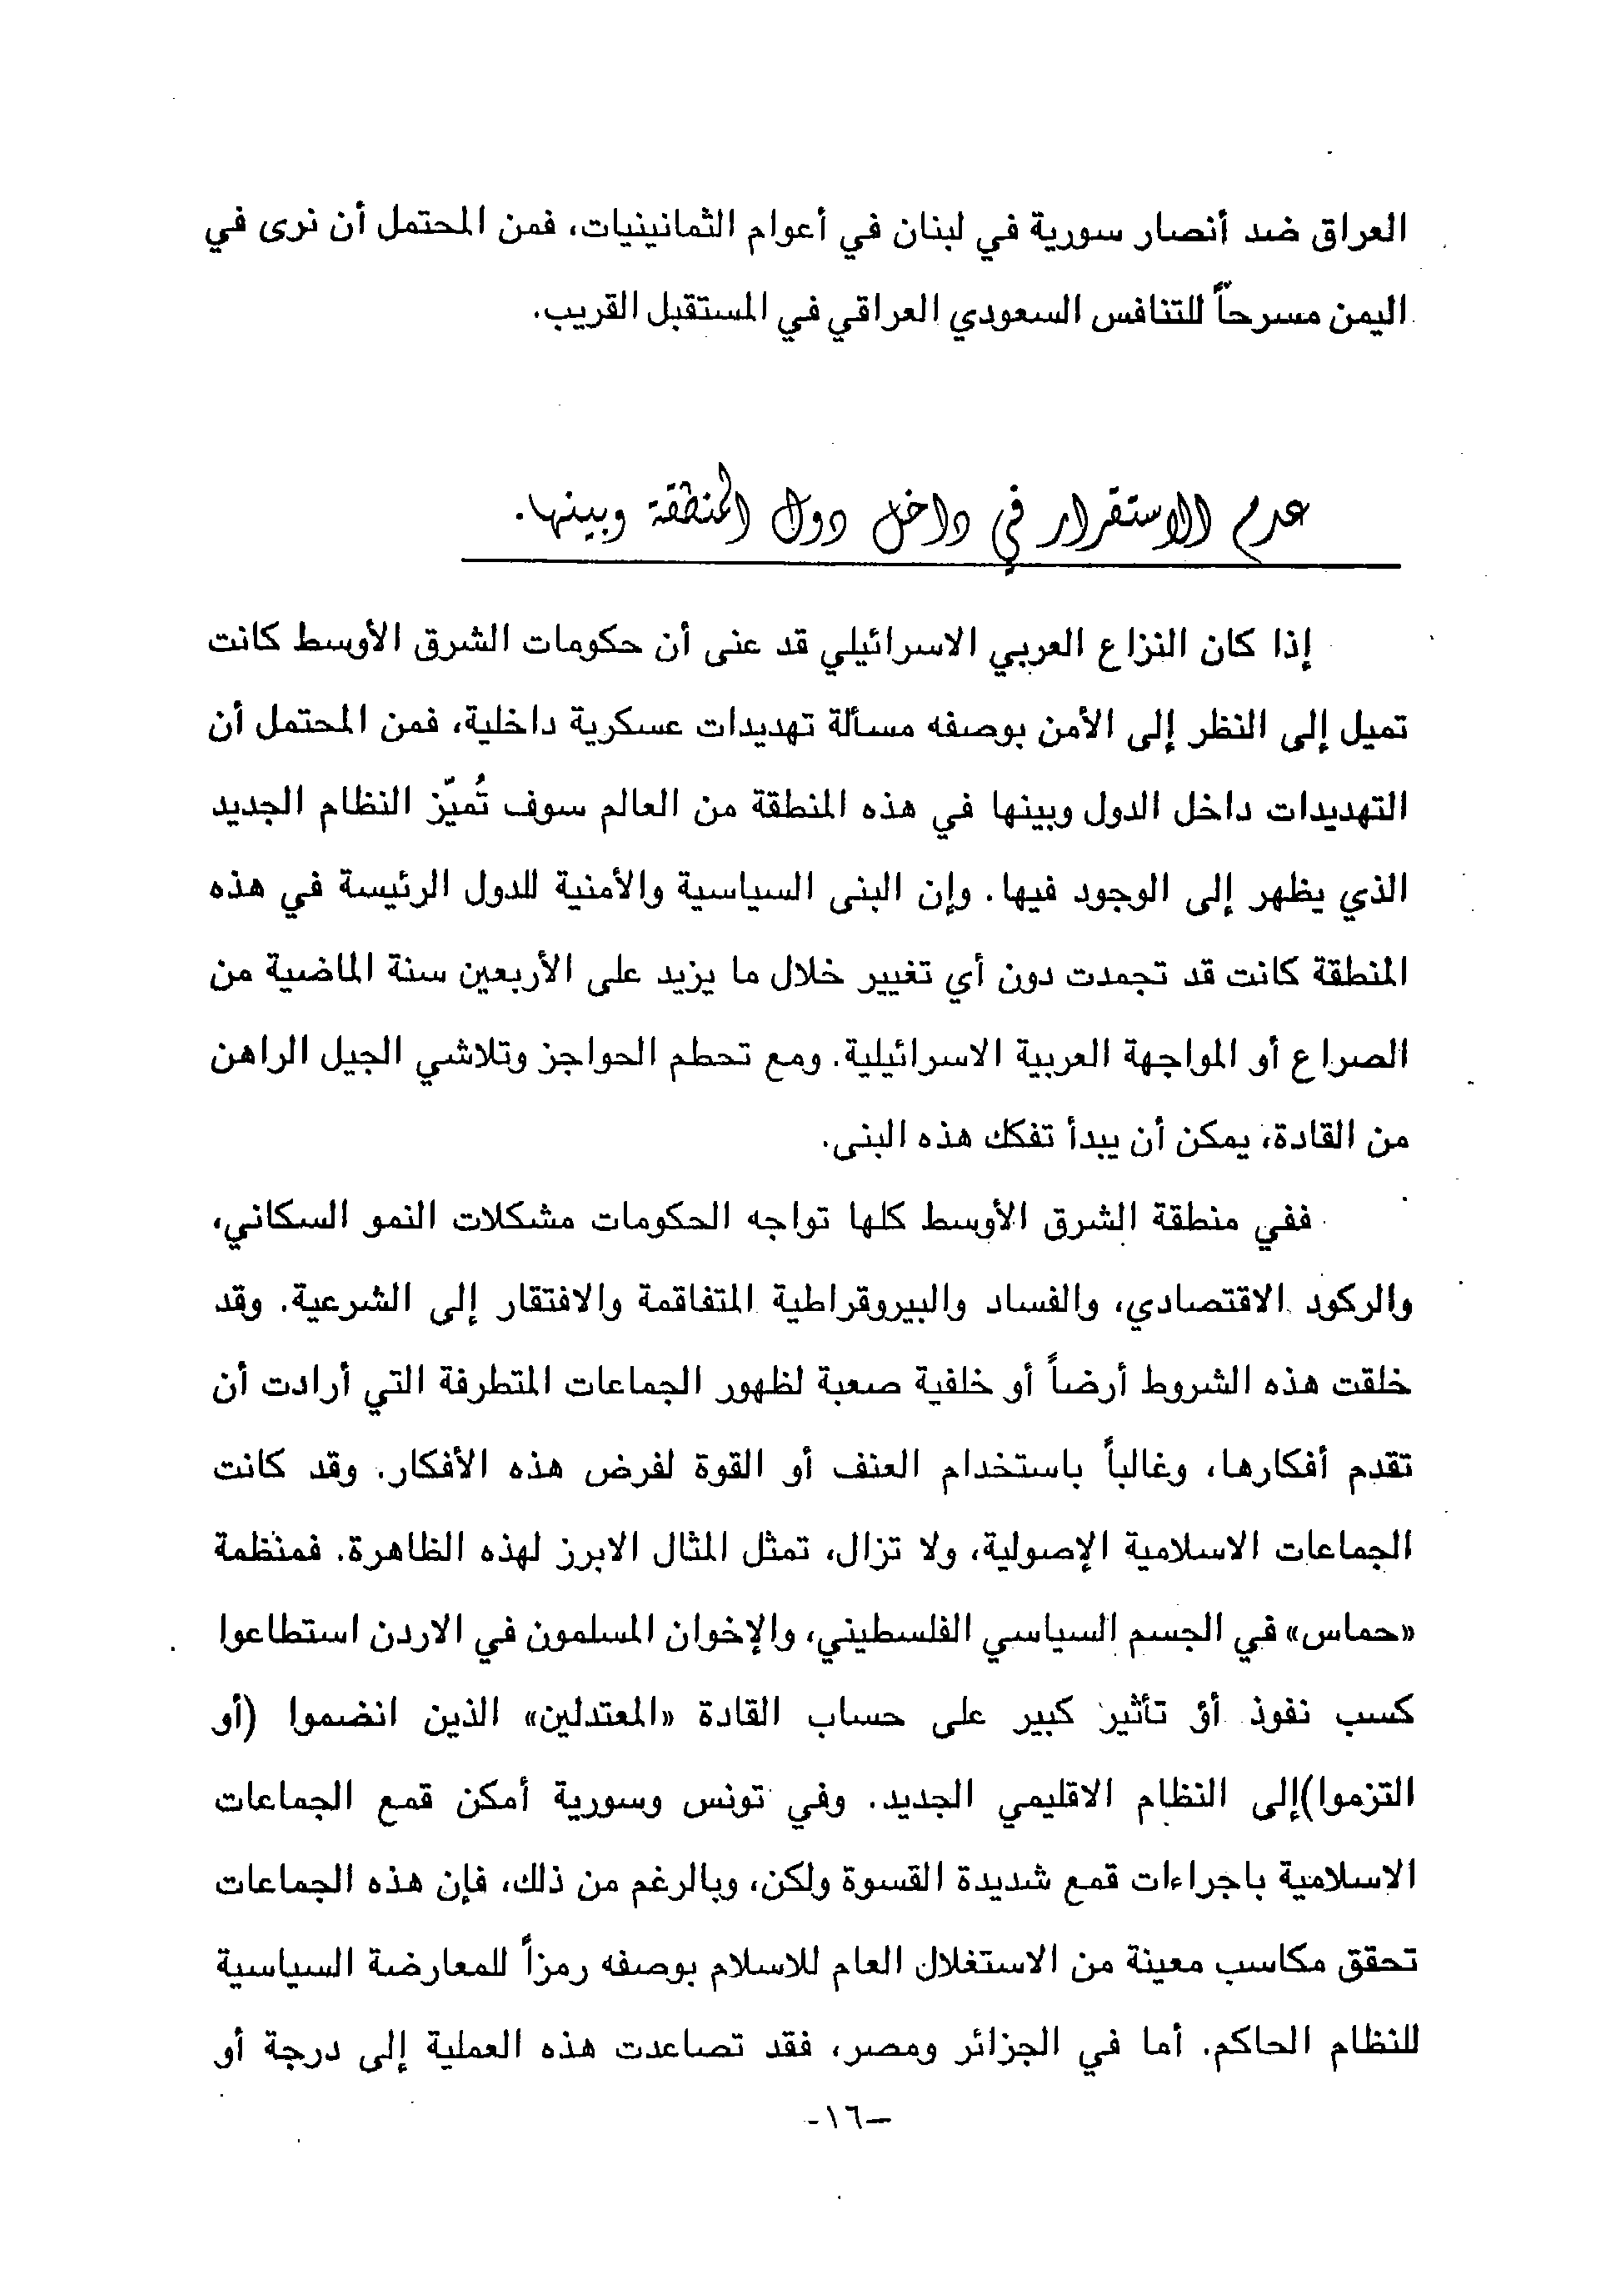 العراق ضد أنصار سورية في لبنان في أعوام الثمانينيات، فمن المحتمل أن نرى في
اليمن مسرحاً للتنافس السعودي العراقي في المستقبل القريب.
عدم الاستقرار في داخل دول المنطقة وبينها.
إذا كان النزاع العربي الاسرائيلي قد عنى أن حكومات الشرق الأوسط كانت
تميل إلى النظر إلى الأمن بوصفه مسألة تهديدات عسكرية داخلية، فمن المحتمل أن
التهديدات داخل الدول وبينها في هذه المنطقة من العالم سوف تُميّز النظام الجديد
الذي يظهر إلى الوجود فيها. وإن البنى السياسية والأمنية للدول الرئيسة في هذه
المنطقة كانت قد تجمدت دون أي تغيير خلال ما يزيد على الأربعين سنة الماضية من
الصراع أو المواجهة العربية الاسرائيلية. ومع تحطم الحواجز وتلاشي الجيل الراهن
من القادة، يمكن أن يبدأ تفكك هذه البنى.
ففي منطقة الشرق الأوسط كلها تواجه الحكومات مشكلات النمو السكاني،
والركود الاقتصادي، والفساد والبيروقراطية المتفاقمة والافتقار إلى الشرعية. وقد
خلقت هذه الشروط أرضاً أو خلفية صعبة لظهور الجماعات المتطرفة التي أرادت أن
تقدم أفكارها، وغالباً باستخدام العنف أو القوة لفرض هذه الأفكار. وقد كانت
الجماعات الاسلامية الإصولية، ولا تزال، تمثل المثال الابرز لهذه الظاهرة. فمنظمة
«حماس» في الجسم السياسي الفلسطيني، والإخوان المسلمون في الاردن استطاعوا
كسب نفوذ أؤ تأثير كبير على حساب القادة «المعتدلين» الذين انضموا (أو
التزموا)إلى النظام الاقليمي الجديد. وفي تونس وسورية أمكن قمع الجماعات
الاسلامية باجراءات قمع شديدة القسوة ولكن، وبالرغم من ذلك، فإن هذه الجماعات
تحقق مكاسب معينة من الاستغلال العام للاسلام بوصفه رمزاً للمعارضة السياسية
للنظام الحاكم. أما في الجزائر ومصر، فقد تصاعدت هذه العملية إلى درجة أو
-١٦-